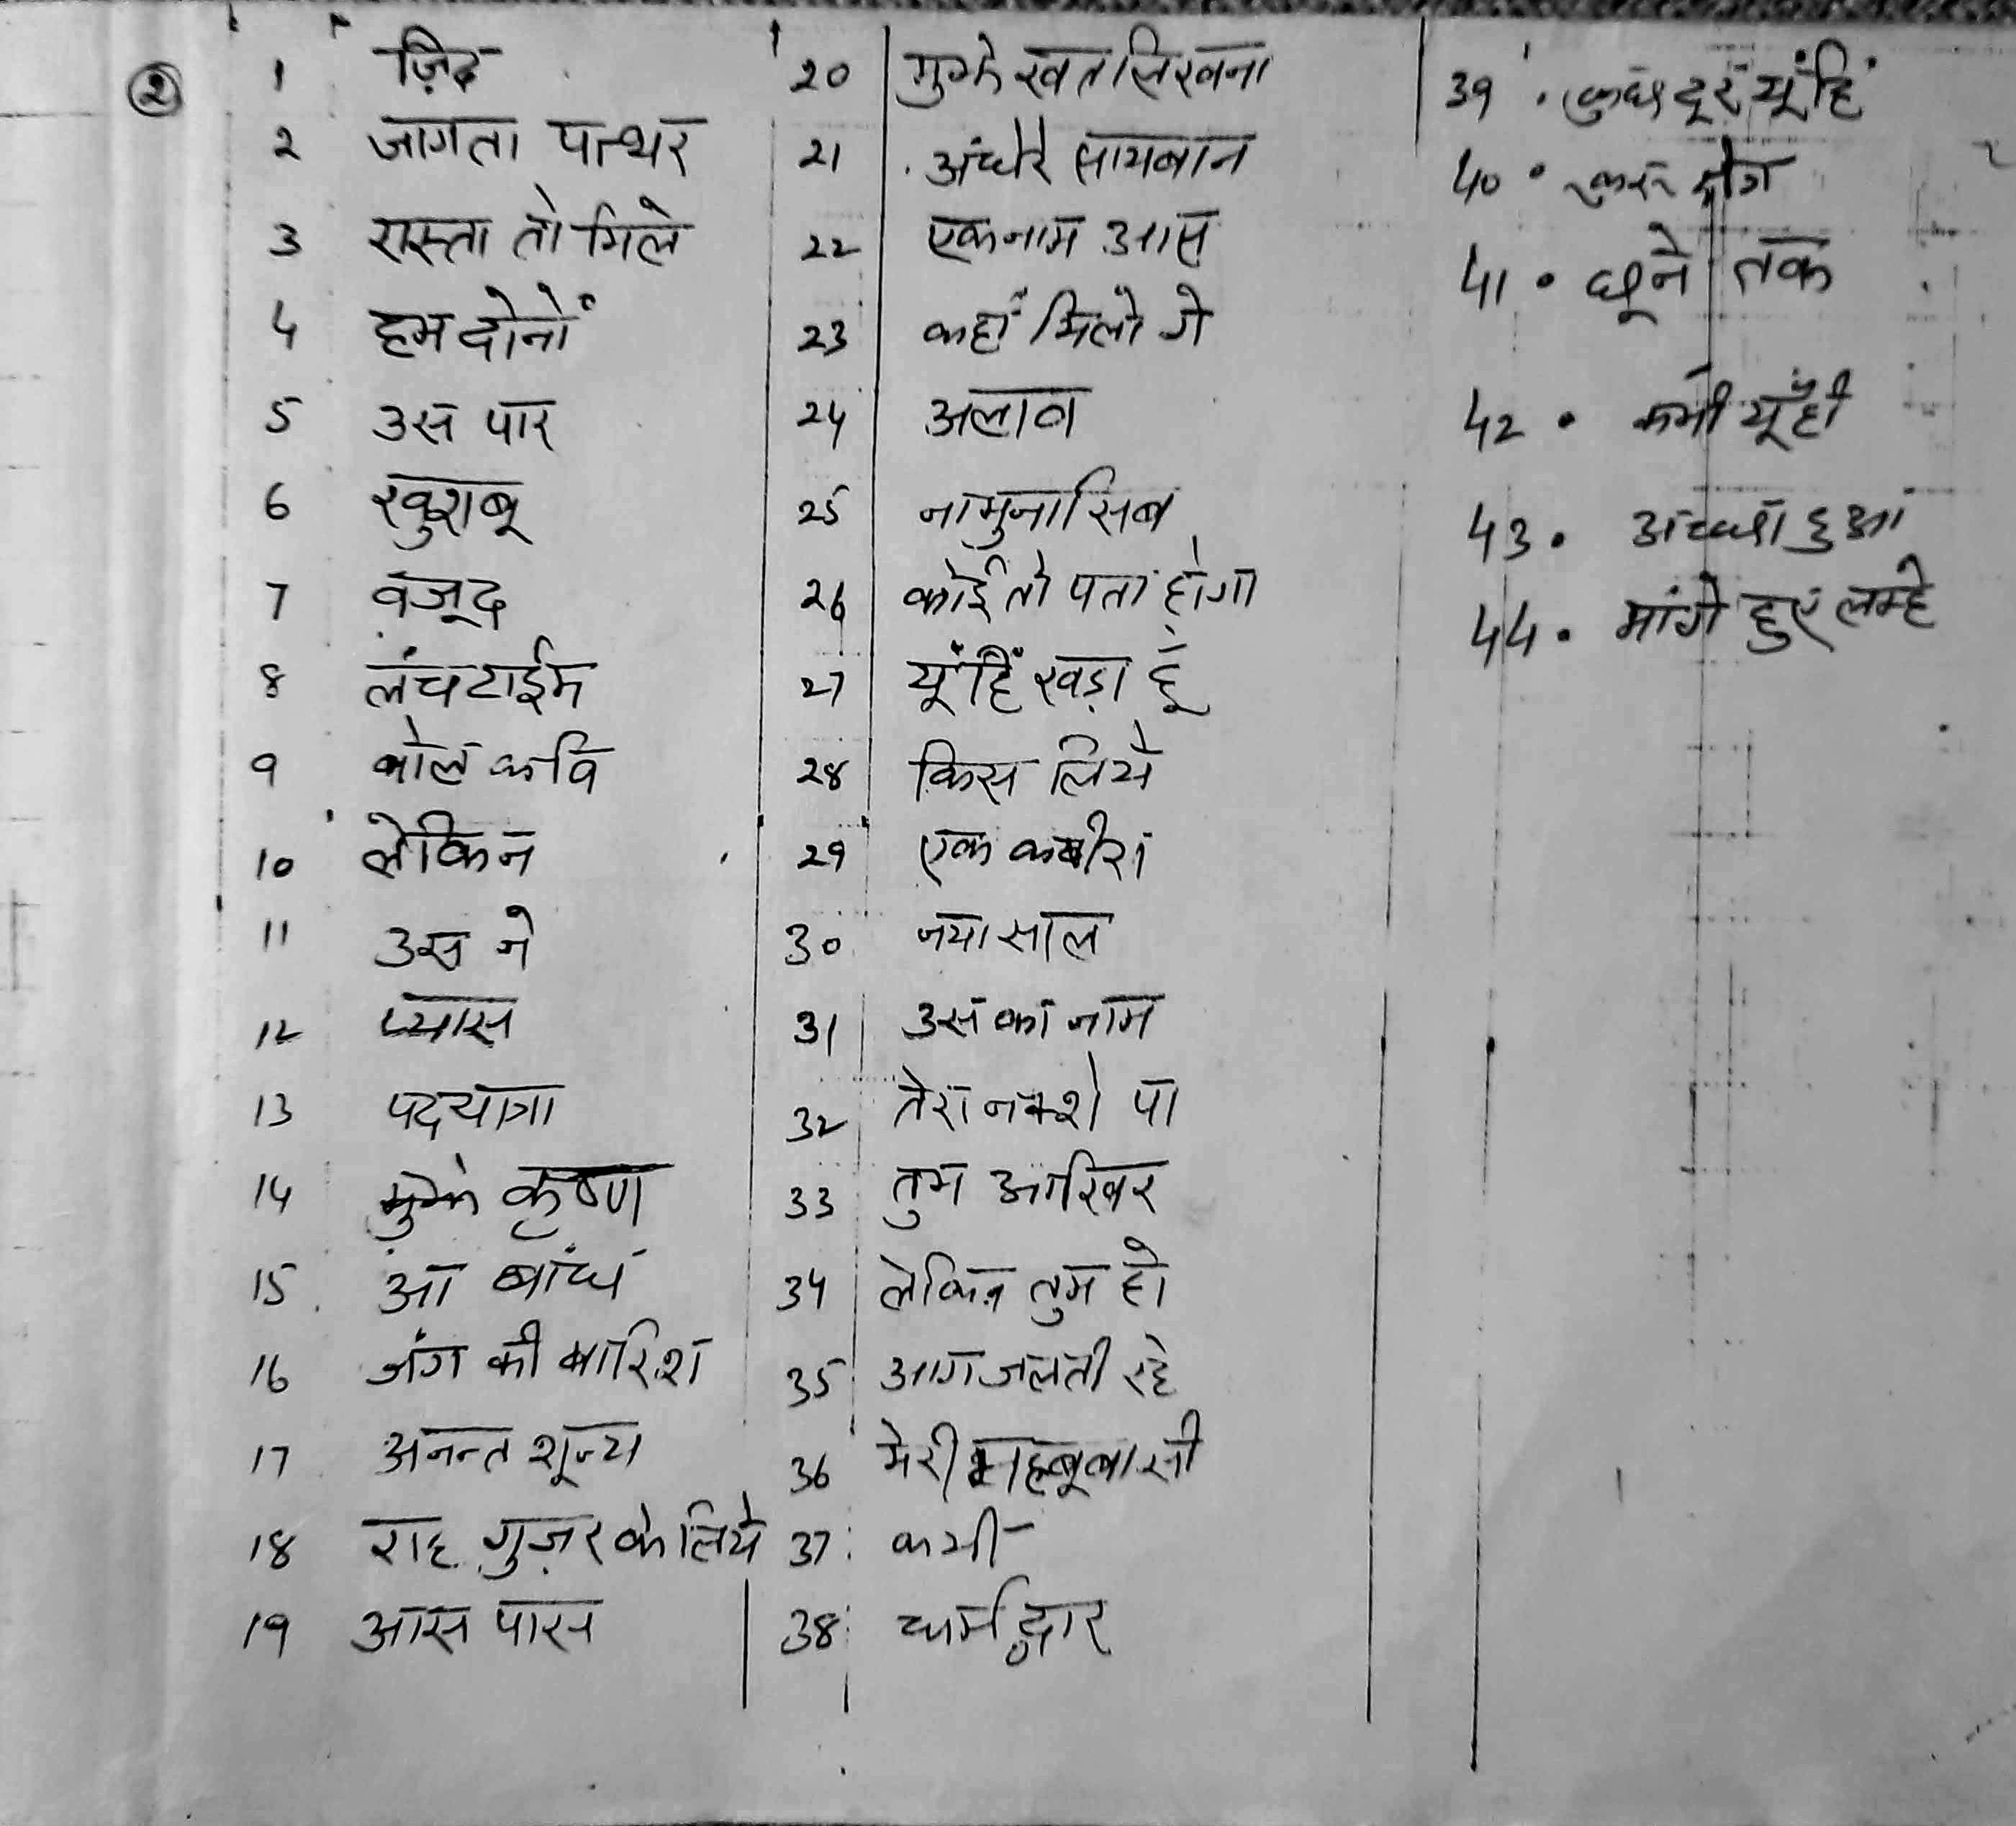 ②
1 ज़िद
2 जागता पत्थर
3 रास्ता तो मिले
4 हम दोनों
5 उस पार
6 खुशबू
7 वजूद
8 लंच टाईम
9 बोल कवि
10 लेकिन
11 उस ने
12 प्यास
13 पदयात्रा
14 मुझे कृष्ण
15 आ बांध
16 जंग की बारिश
17 अनन्त शून्य
18 राह गुज़र के लिये
19 आस पास
20 मुझे खत लिखना
21 अंधेरे सायबान
22 एक नाम आस
23 कहाँ मिलो गे
24 अलाव
25 नामुनासिब
26 कोई तो पता होगा
27 यूंहिं खड़ा हूँ
28 किस लिये
29 एक कबीरा
30 नया साल
31 उस का नाम
32 तेरा नक्शे पा
33 तुम आखिर
34 लेकिन तुम हो
35 आग जलती रहे
36 मेरी महबूबा सी
37 कभी
38 धर्म द्वार
39 कुछ दूर यूंहिं
40 लोग
41 छूने तक
42 कभी यूँही
43 अच्छा हुआ
44 मांगे हुए लम्हे